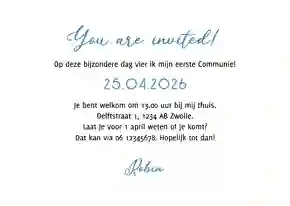 You are invited!
Op deze bijzondere dag vier ik mijn eerste Communie!
25.04.2026
Je bent welkom om 13.00 uur bij mij thuis.
Delftstraat 1, 1234 AB Zwolle.
Laat je voor 1 april weten of je komt?
Dat kan via 06 12345678. Hopelijk tot dan!
Robin